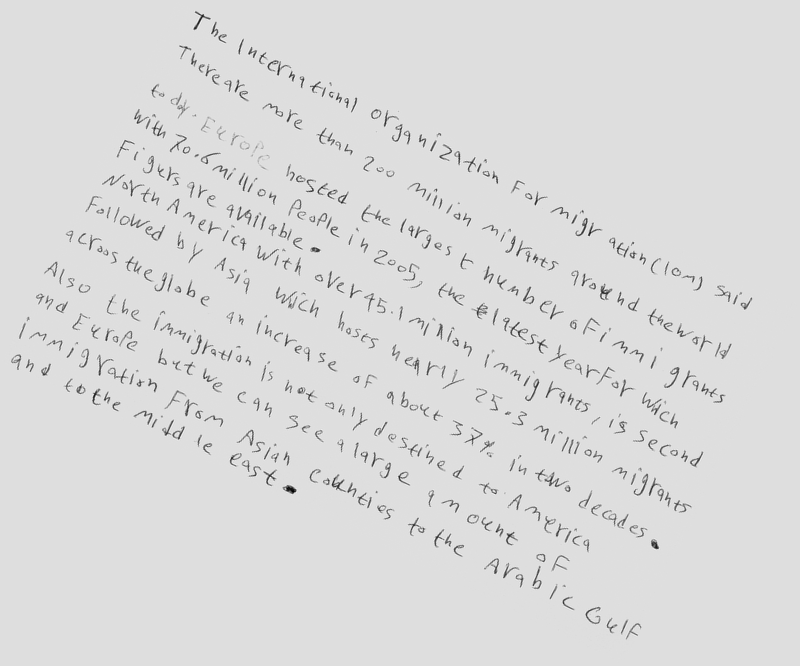 The International organization For migration (IOM) said
Thereare more than 200 million migrants around theworld
today. Europe hosted the largest number oF immigrants
with 70.6 million People in 2005, the latest yearFor wich
Figurs are available.
North America with over 45.1 million immigrants, is second
Followed by Asia wich hosts nearly 25.3 million migrants
across the globe an increase of about 37% in two decades.
Also the immigration is not only destined to America
and Europe but we can see a large amount oF
immigration From Asian counties to the Arabic Gulf
and to the middle east.